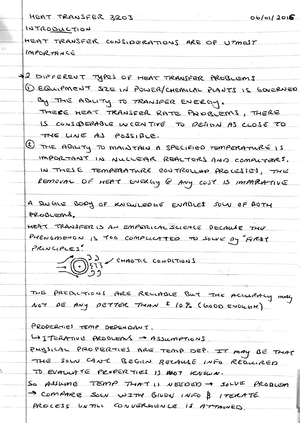 HEAT TRANSFER 3203 06/01/2016
INTRODUCTION
HEAT TRANSFER CONSIDERATIONS ARE OF UTMOST
IMPORTANCE
2 DIFFERENT TYPES OF HEAT TRANSFER PROBLEMS
① EQUIPMENT SIZE IN POWER/CHEMICAL PLANTS IS GOVERNED
BY THE ABILITY TO TRANSFER ENERGY.
THESE HEAT TRANSFER RATE PROBLEMS, THERE
IS CONSIDERABLE INCENTIVE TO DESIGN AS CLOSE TO
THE LINE AS POSSIBLE.
② THE ABILITY TO MAINTAIN A SPECIFIED TEMPERATURE IS
IMPORTANT IN NUCLEAR REACTORS AND COMPUTERS.
IN THESE TEMPERATURE CONTROLLED PROCESSES, THE
REMOVAL OF HEAT ENERGY @ ANY COST IS IMPARATIVE
A SINGLE BODY OF KNOWLEDGE ENABLES SOLN OF BOTH
PROBLEMS.
HEAT TRANSFER IS AN EMPERICAL SCIENCE BECAUSE THE
PHENOMENON IS TOO COMPLICATED TO SOLVE BY "FIRST
PRINCIPLES".
CHAOTIC CONDITIONS
THE PREDICTIONS ARE RELIABLE BUT THE ACCURACY MAY
NOT BE ANY BETTER THAN ± 10% (GOOD ENOUGH).
PROPERTIES TEMP DEPENDANT.
↳ ITERATIVE PROBLEMS → ASSUMPTIONS.
PHYSICAL PROPERTIES ARE TEMP DEP. IT MAY BE THAT
THE SOLN CAN'T BEGIN BECAUSE INFO REQUIRED
TO EVALUATE PROPERTIES IS NOT KNOWN.
SO ASSUME TEMP THAT IS NEEDED → SOLVE PROBLEM
→ COMPARE SOLN WITH GIVEN INFO & ITERATE
PROCESS UNTIL CONVERGENCE IS ATTAINED.